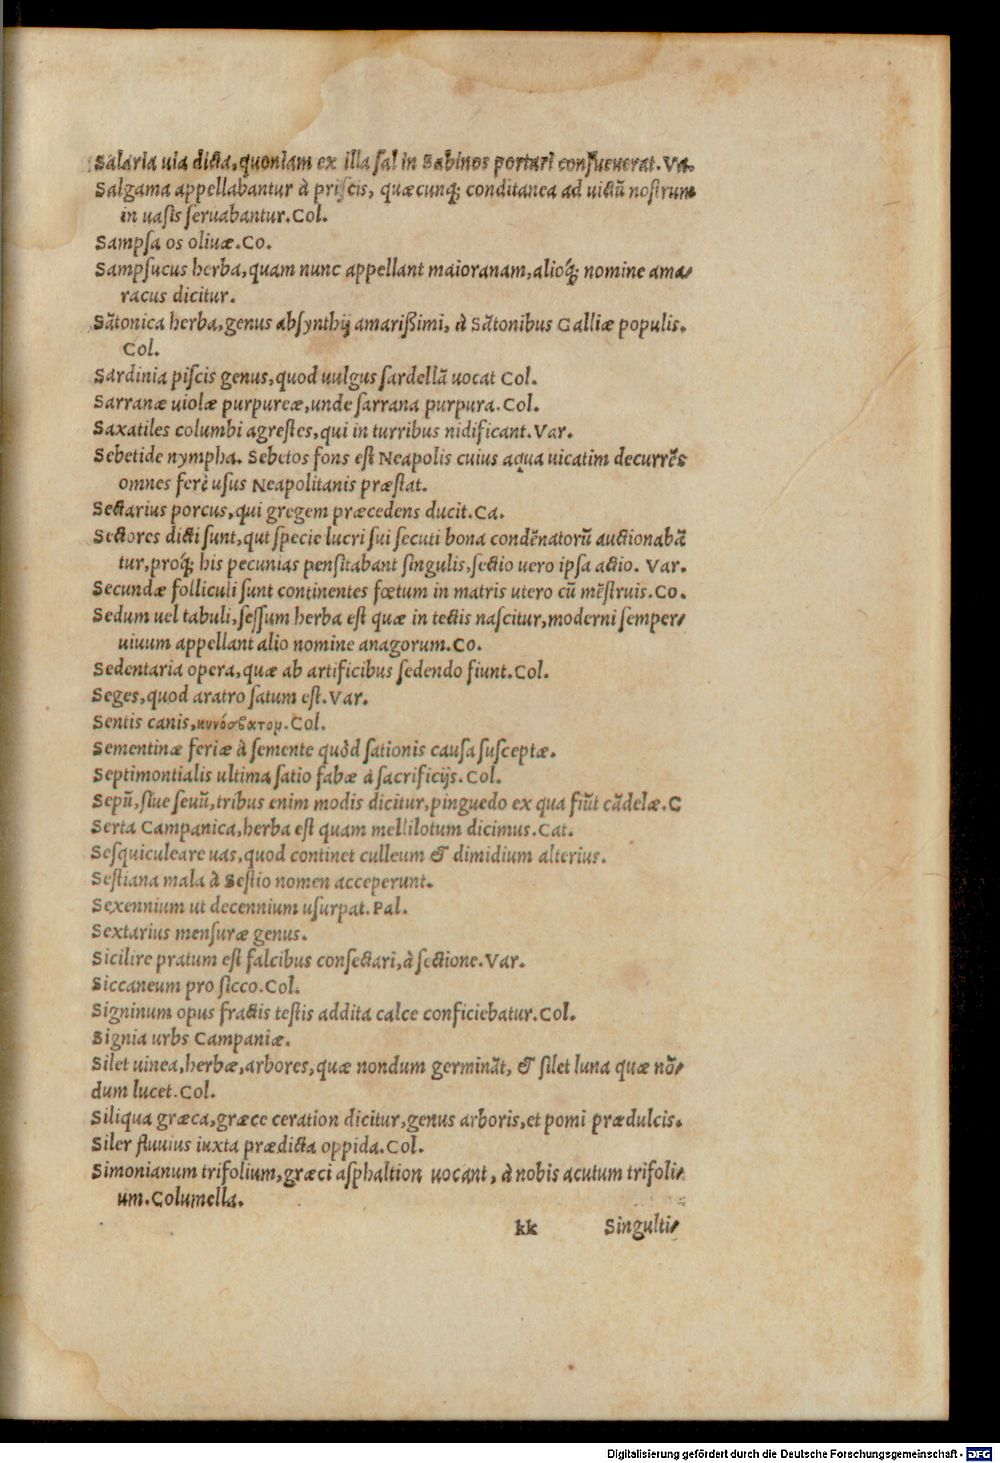 Salaria uia dicta, quoniam ex illa ſal in Sabinos portari conſueuerat. Va.
Salgama appellabantur à priſcis, quæcunq; conditanea ad uictũ noſtrum
in uaſis ſeruabantur. Col.
Sampſa os oliuæ. Co.
Sampſucus herba, quam nunc appellant maioranam, alioq́; nomine ama/
racus dicitur.
Sãtonica herba, genus abſynthij amarißimi, à Sãtonibus Galliæ populis.
Col.
Sardinia piſcis genus, quod uulgus ſardellã uocat Col.
Sarranæ uiolæ purpureæ, unde ſarrana purpura. Col.
Saxatiles columbi agreſtes, qui in turribus nidificant. Var.
Sebetide nympha. Sebetos fons eſt Neapolis cuius aqua uicatim decurrẽs
omnes ferè uſus Neapolitanis præſtat.
Sectarius porcus, qui gregem præcedens ducit. Ca.
Sectores dicti ſunt, qui ſpecie lucri ſui ſecuti bona condẽnatorũ auctionabã
tur, proq́; his pecunias penſitabant ſingulis, ſectio uero ipſa actio. Var.
Secundæ folliculi ſunt continentes fœtum in matris utero cũ mẽſtruis. Co.
Sedum uel tabuli, ſeſſum herba eſt quæ in tectis naſcitur, moderni ſemper/
uiuum appellant alio nomine anagorum. Co.
Sedentaria opera, quæ ab artificibus ſedendo fiunt. Col.
Seges, quod aratro ſatum eſt. Var.
Sentis canis, κυνόσβατομ. Col.
Sementinæ feriæ à ſemente quòd ſationis cauſa ſuſceptæ.
Septimontialis ultima ſatio fabæ à ſacrificijs. Col.
Sepũ, ſiue ſeuũ, tribus enim modis dicitur, pinguedo ex qua fiũt cãdelæ. C
Serta Campanica, herba eſt quam mellilotum dicimus. Cat.
Seſquiculeare uas, quod continet culleum & dimidium alterius.
Seſtiana mala à Seſtio nomen acceperunt.
Sexennium ut decennium uſurpat. Pal.
Sextarius menſuræ genus.
Sicilire pratum eſt falcibus conſectari, à ſectione. Var.
Siccaneum pro ſicco. Col.
Signinum opus fractis teſtis addita calce conficiebatur. Col.
Signia urbs Campaniæ.
Silet uinea, herbæ, arbores, quæ nondum germinãt, & ſilet luna quæ nõ/
dum lucet. Col.
Siliqua græca, græce ceration dicitur, genus arboris, et pomi prædulcis.
Siler fluuius iuxta prædicta oppida. Col.
Simonianum trifolium, græci aſphaltion uocant, à nobis acutum trifoli/
um. Columella.
kk Singulti/
Digitalisierung gefördert durch die Deutsche Forschungsgemeinschaft - DFG